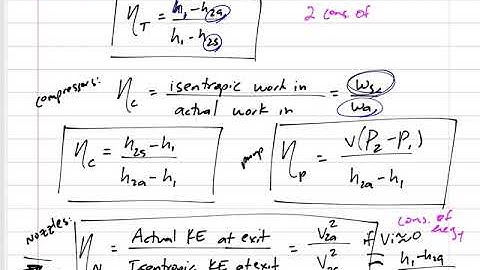 η_T = h₁-h₂ₐ / h₁-h₂ₛ
2 cons. of
compressors: η_c = isentropic work in / actual work in = wₛ / wₐ
η_c = h₂ₛ-h₁ / h₂ₐ-h₁
pump η_p = v(P₂-P₁) / h₂ₐ-h₁
Nozzles: η_N = Actual KE at exit / Isentropic KE at exit = V₂ₐ² / V₂ₛ² if Vi≈0
cons. of
h₁-h₂ₐ